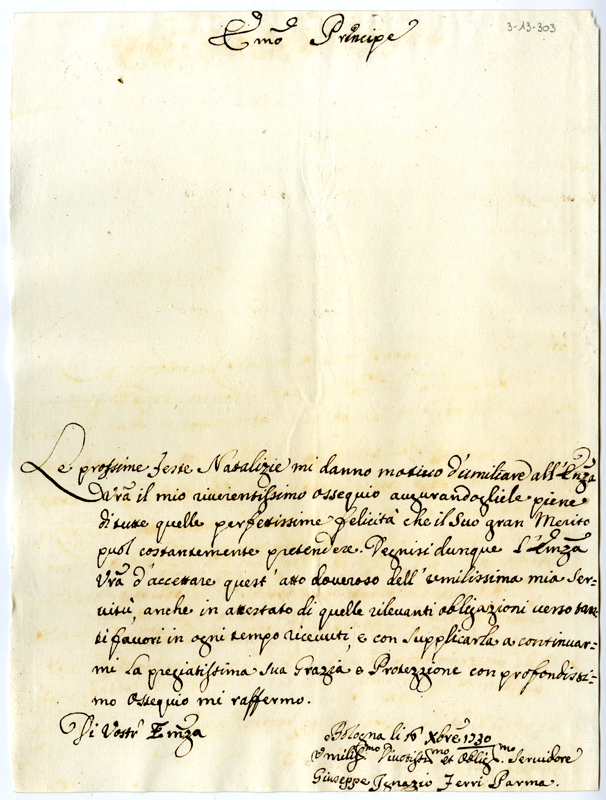 3-13-303
Emo Principe
Le prossime Feste Natalizie mi danno motivo d'umiliare all'Emza
Vra il mio riverentissimo ossequio augurandogliele piene
di tutte quelle perfettissime felicità che il Suo gran Merito
puol costantemente pretendere. Degnisi dunque l'Emza
Vra d'accettare quest'atto doveroso dell'umilissima mia Ser=
vitù, anche in attestato di quelle rilevanti obligazioni verso tan=
ti favori in ogni tempo ricevuti, e con supplicarla a continuar=
mi la pregiatissima sua Grazia e Protezzione con profondissi=
mo ossequio mi raffermo.
Di Vostr Emza
Bologna li 16 Xbre 1730
Umilissmo Divotissmo et Obligmo Servidore
Giuseppe Ignazio Ferri Parma.